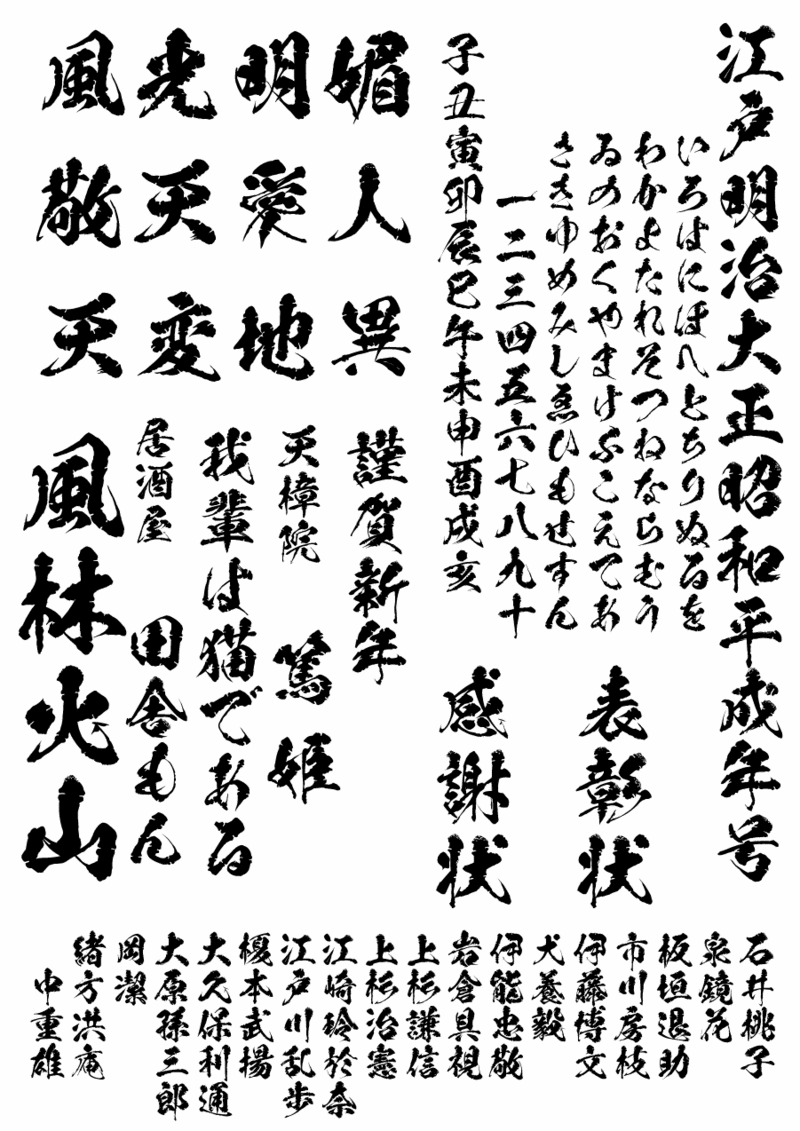 江戸明治大正昭和平成年号
いろはにほへとちりぬるを
わかよたれそつねならむう
ゐのおくやまけふこえてあ
さきゆめみしゑひもせすん
一二三四五六七八九十
子丑寅卯辰巳午未申酉戌亥
表彰状
感謝状
媚人異
明愛地
光天変
風敬天
謹賀新年
天樟院
篤姫
我輩は猫である
居酒屋
田舎もん
風林火山
石井桃子
泉鏡花
板垣退助
市川房枝
伊藤博文
犬養毅
伊能忠敬
岩倉具視
上杉謙信
上杉治憲
江崎玲於奈
江戸川乱歩
榎本武揚
大久保利通
大原孫三郎
岡潔
緒方洪庵
中重雄